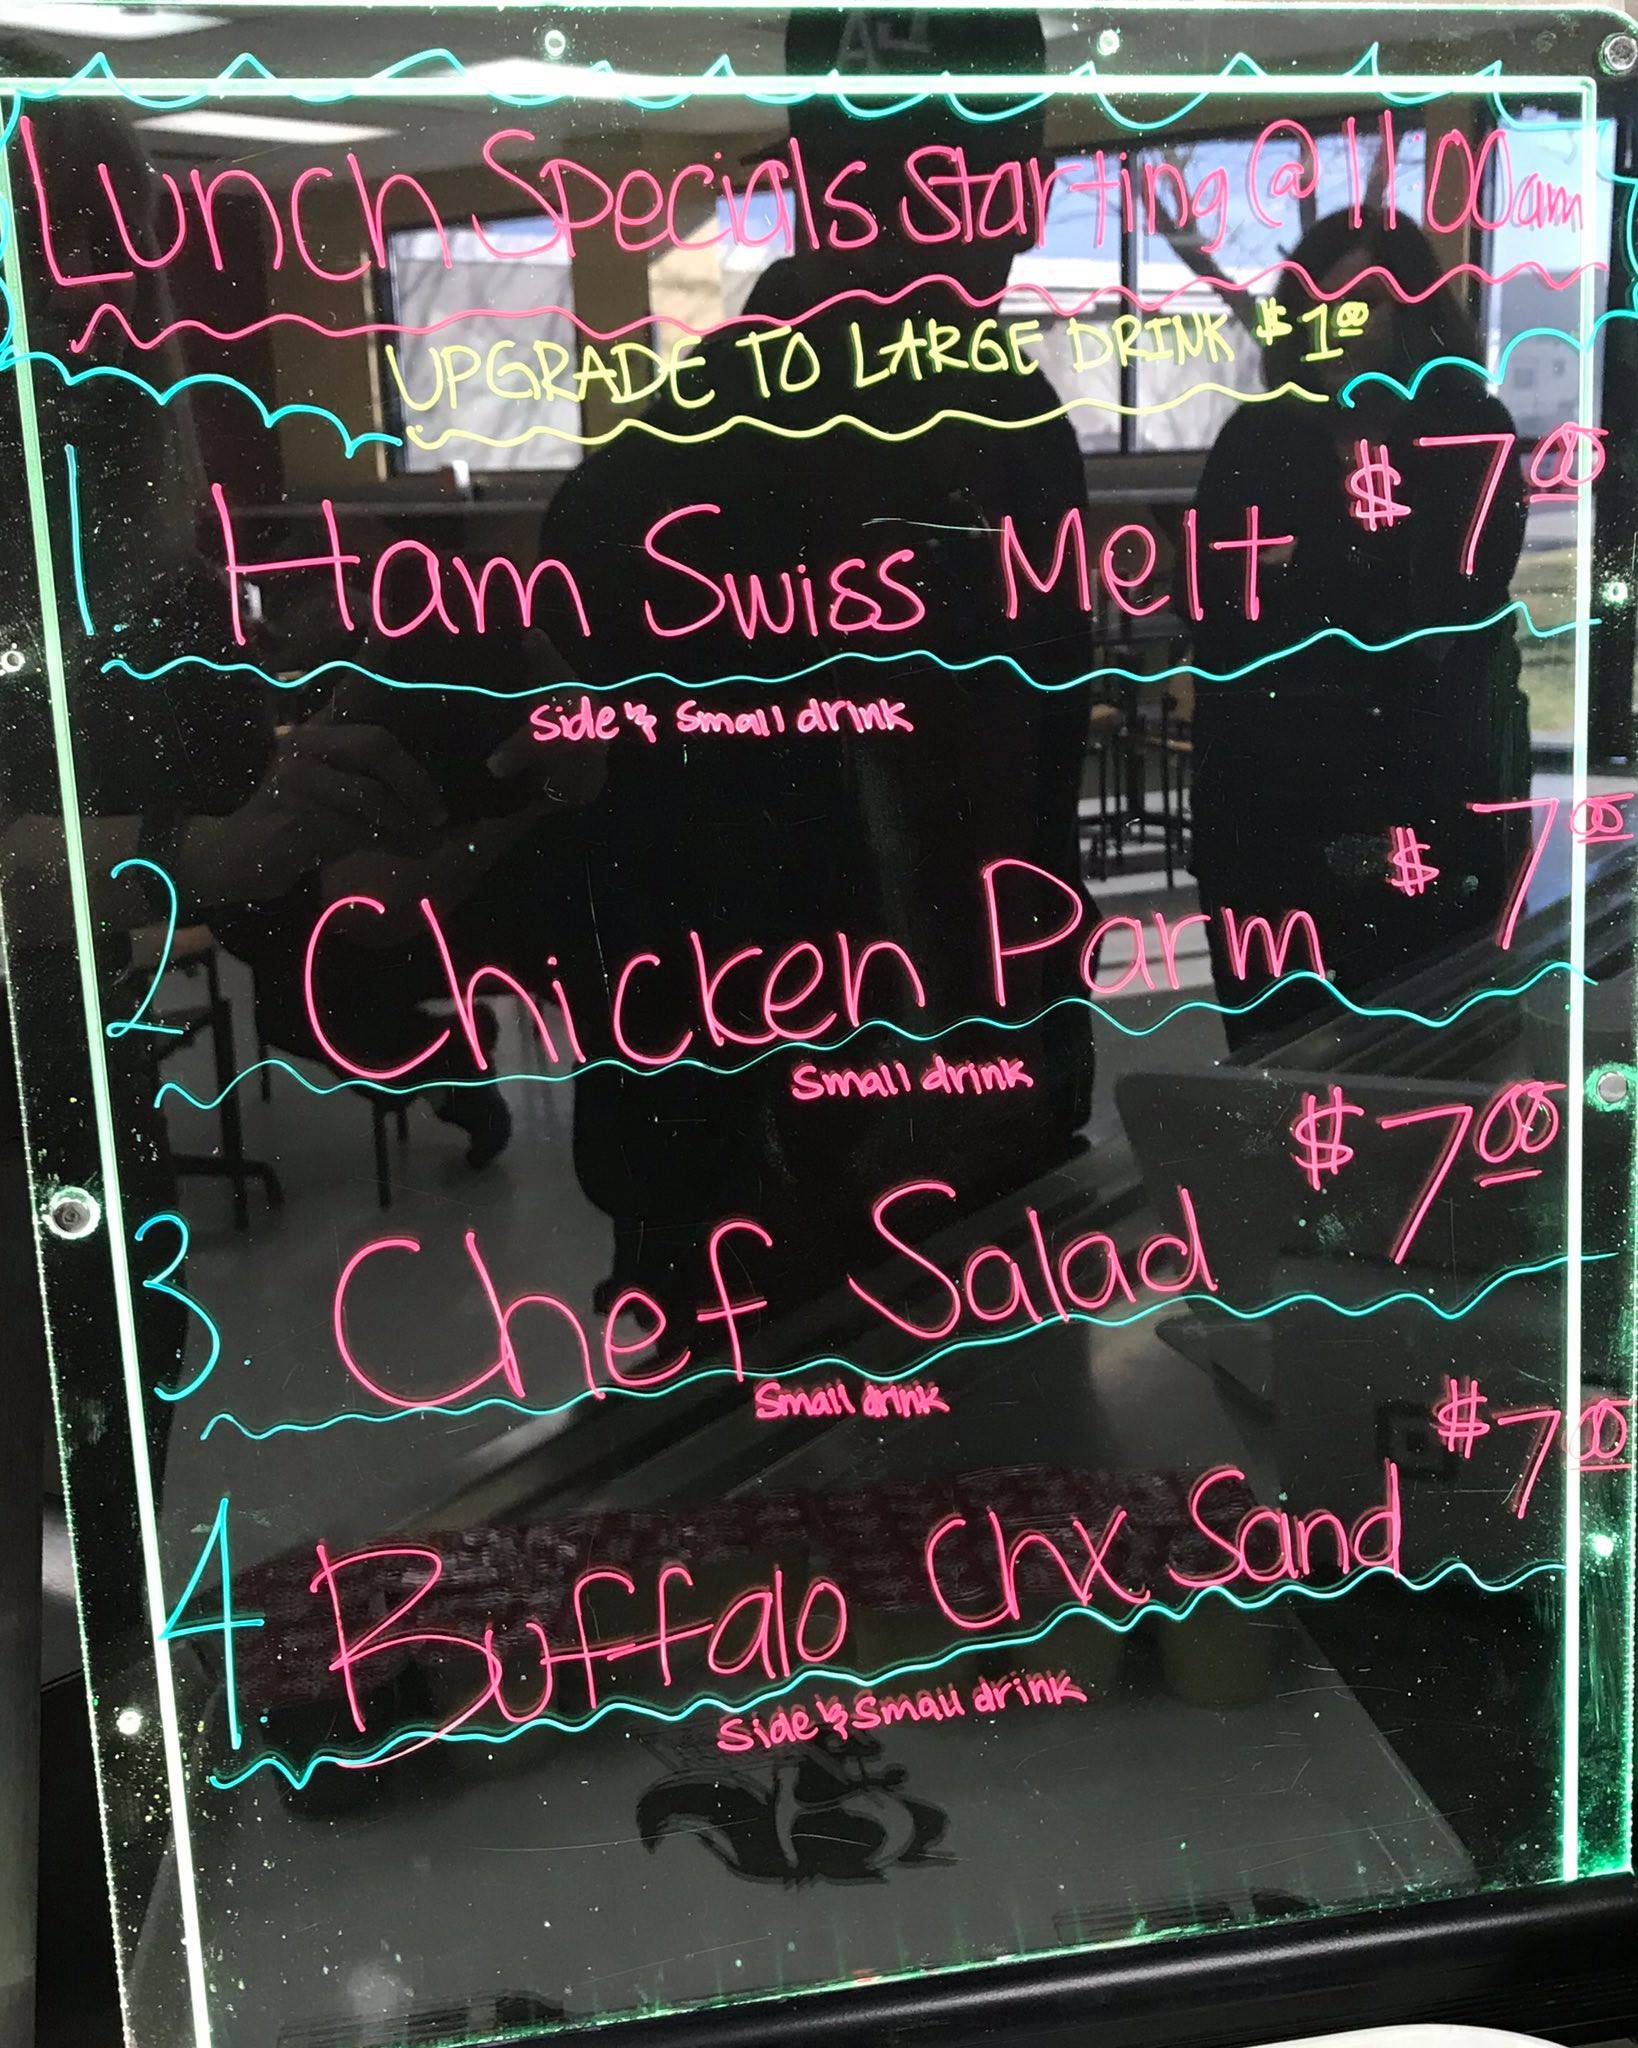 Lunch Specials Starting @ 11:00am
UPGRADE TO LARGE DRINK $1.00
1. Ham Swiss Melt $7.00
Side & Small drink
2 Chicken Parm $7.00
Small drink
3. Chef Salad $7.00
Small drink
4. Buffalo Chx Sand $7.00
Side & Small drink